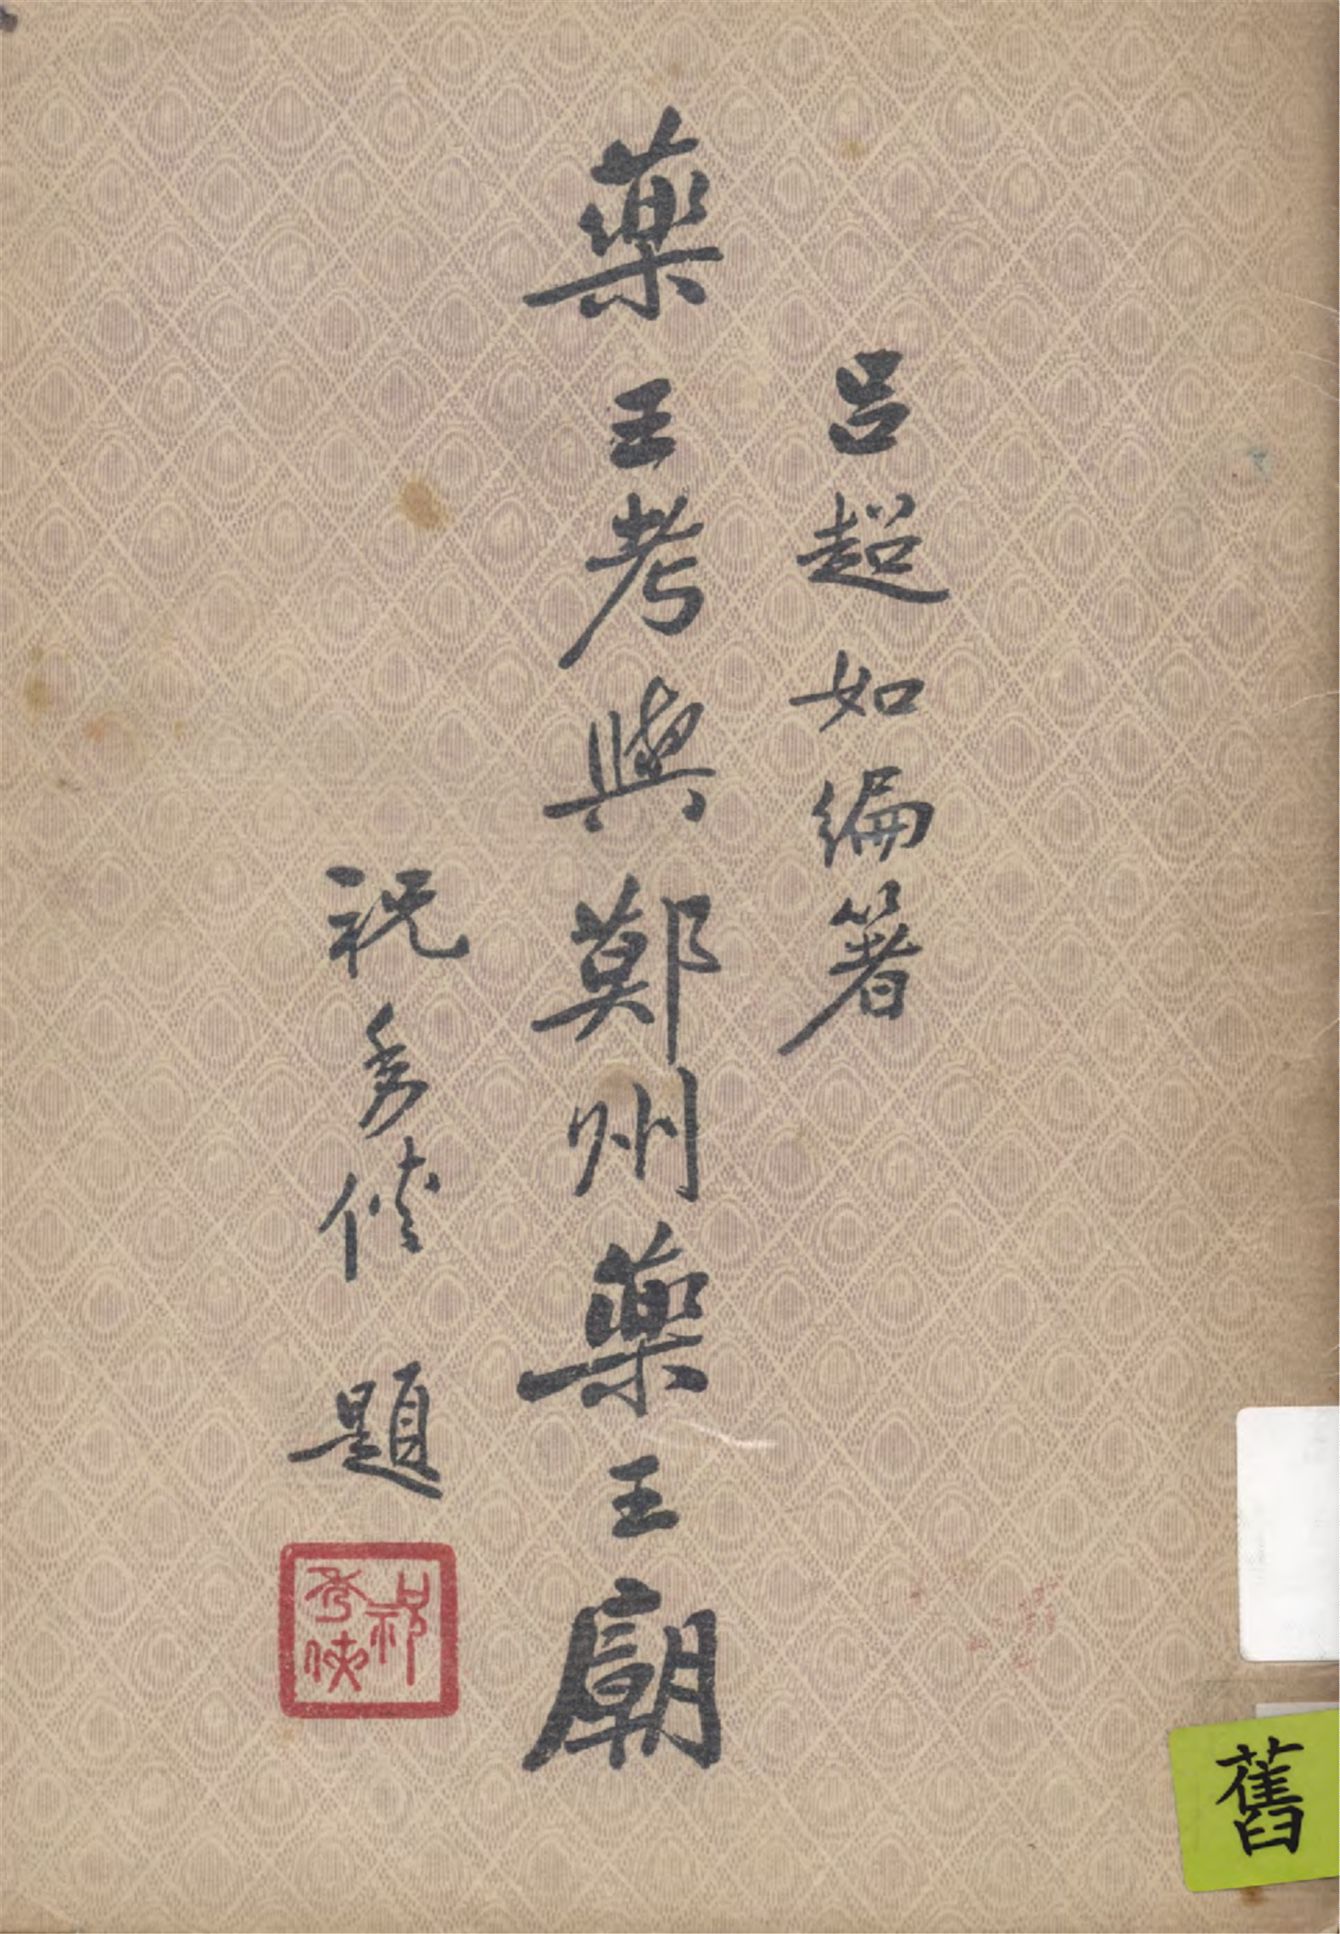 呂超如編箸
藥王考與鄚州藥王廟
祝秀俠題
祝秀俠
舊